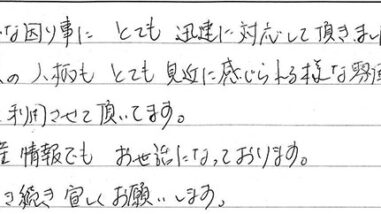 な困り事に とても 迅速に対応して頂きまし
の 人柄も とても 身近に感じられる様な
利用させて頂いてます。
情報でも お世話になっております。
き続き宜しくお願いします。